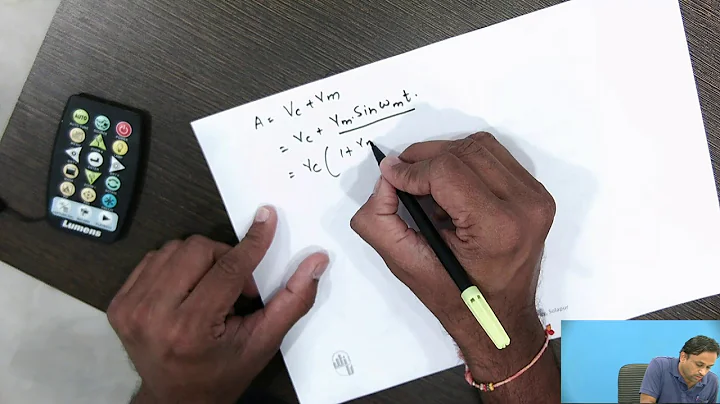 A = Vc + Vm
= Vc + Vm sin ωm t.
= Vc ( 1 + Vm
AUTO
Lumens
Solapur